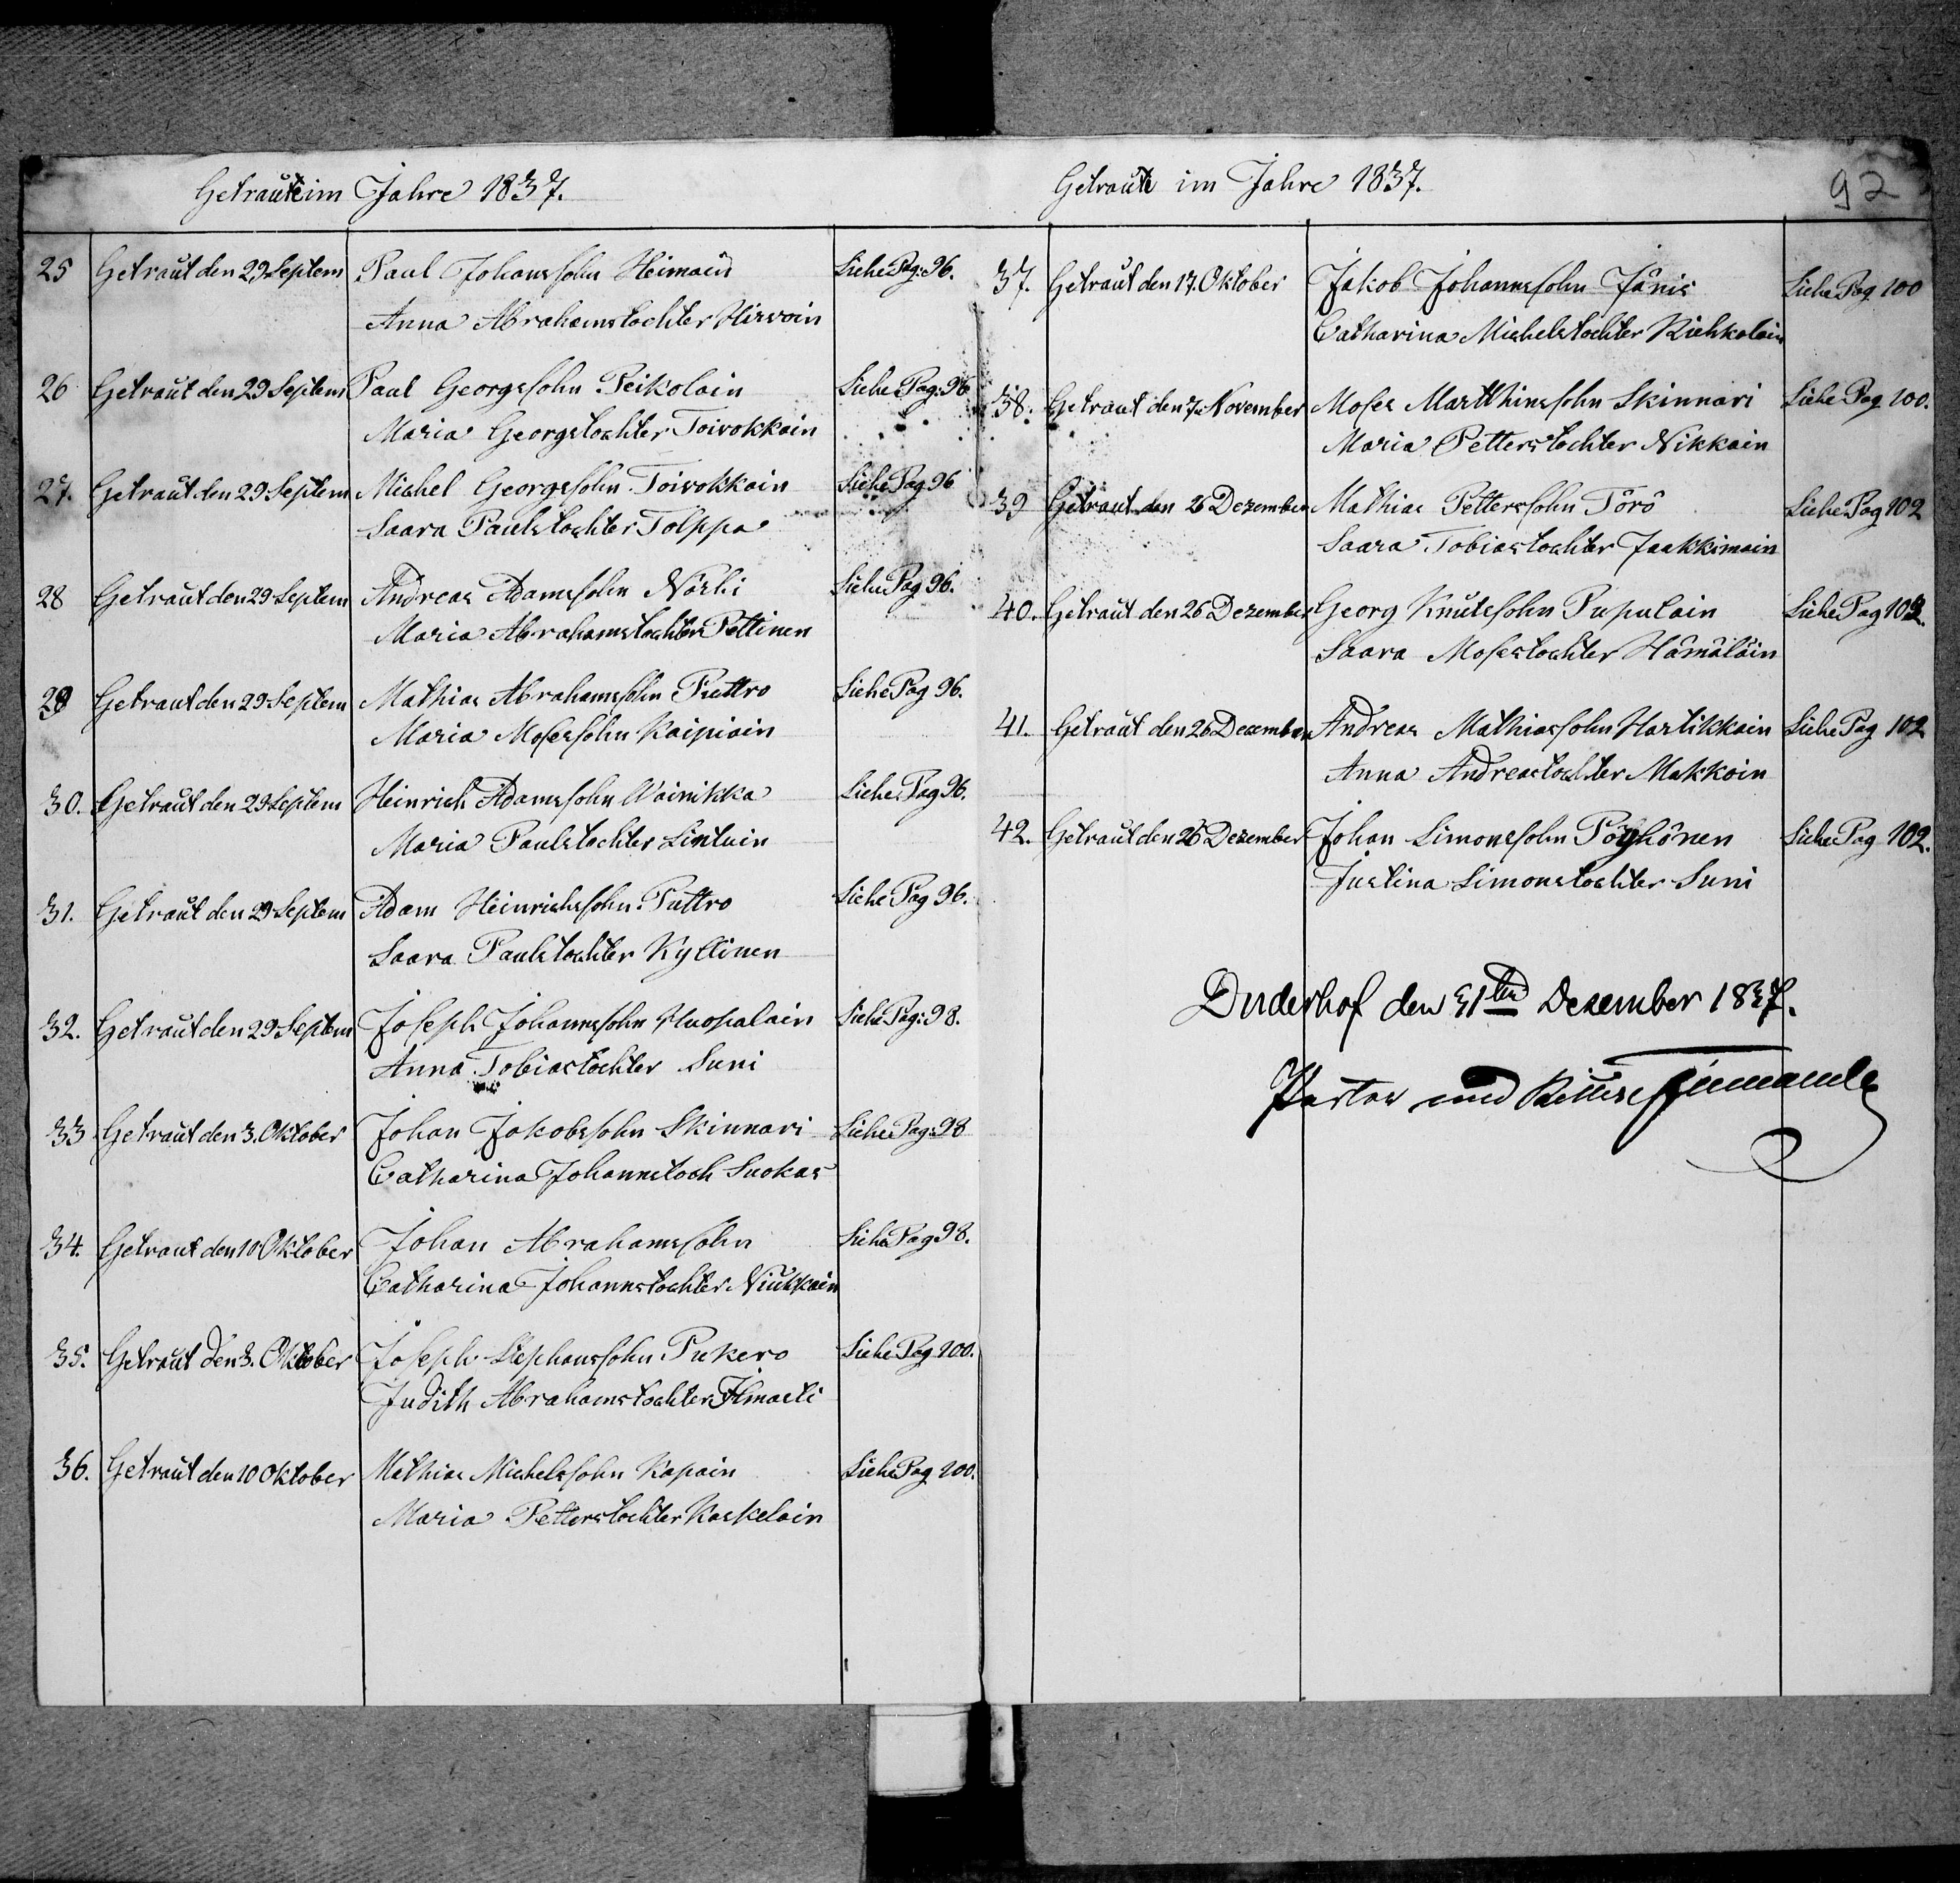 Getraute im Jahre 1837.
25 Getraut den 29 Septem Paul Johanssohn Heimain Siehe Pag: 96.
Anna Abrahamstochter Hirvoin
26 Getraut den 29 Septem Paul Georgssohn Peikolain Siehe Pag: 96
Maria Georgstochter Toivokkain
27. Getraut den 29 Septem Michel Georgssohn Toivokkain Siehe Pag 96
Saara Paulstochter Tolppa
28 Getraut den 29 Septem Andreas Adamssohn Siehe Pag 96.
Maria Abrahamstochter Pettinen
29 Getraut den 29 Septem Mathias Abrahamssohn Puttro Siehe Pag 96.
Maria Mosessohn Kaipiain
30. Getraut den 29 Septem Heinrich Adamssohn Wainikka Siehe Pag 96.
Maria Paulstochter Lintuin
31. Getraut den 29 Septem Adam Heinrichssohn Puttro Siehe Pag 96.
Saara Paulstochter Kyttinen
32. Getraut den 29 Septem Joseph Johannssohn Huopalain Siehe Pag: 98.
Anna Tobiastochter Suni
33 Getraut den 3. Oktober Johan Jakobssohn Skinnari Siehe Pag: 98
Catharina Johannstoch Suokas
34. Getraut den 10 Oktober Johan Abrahamssohn Siehe Pag 98.
Catharina Johannstochter Niukkain
35. Getraut den 3. Oktober Joseph Stephanssohn Pukero Siehe Pag 100.
Judith Abrahamstochter
36. Getraut den 10 Oktober Mathias Michelssohn Kapain Siehe Pag 100.
Maria Petterstochter Koskelain
Getraute im Jahre 1837.
92
37. Getraut den 17. Oktober Jakob Johannssohn Jänis Siehe Pag 100
Catharina Michelstochter Kiehkolain
38. Getraut den 7 November Moses Martthinssohn Skinnari Siehe Pag 100.
Maria Petterstochter Nikkain
39 Getraut den 26 Dezember Mathias Petterssohn Törö Siehe Pag 102
Saara Tobiastochter Jaakkimain
40. Getraut den 26 Dezember Georg Knutssohn Pupulain Siehe Pag 102.
Saara Mosestochter Hämäläin
41. Getraut den 26 Dezember Andreas Mathiassohn Hartikkain Siehe Pag 102
Anna Andreastochter Makkoin
42. Getraut den 26 Dezember Johan Simonssohn Pöyhönen Siehe Pag 102.
Justina Simonstochter Suni
Duderhof den 31ten Dezember 1837.
Pastor und Ritter